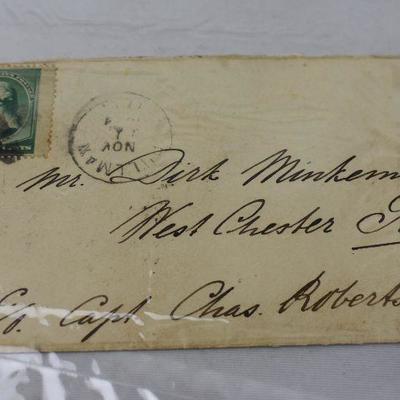 NOV
Mr. Dirk Minkem
West Chester
C/o. Capt Chas. Roberts